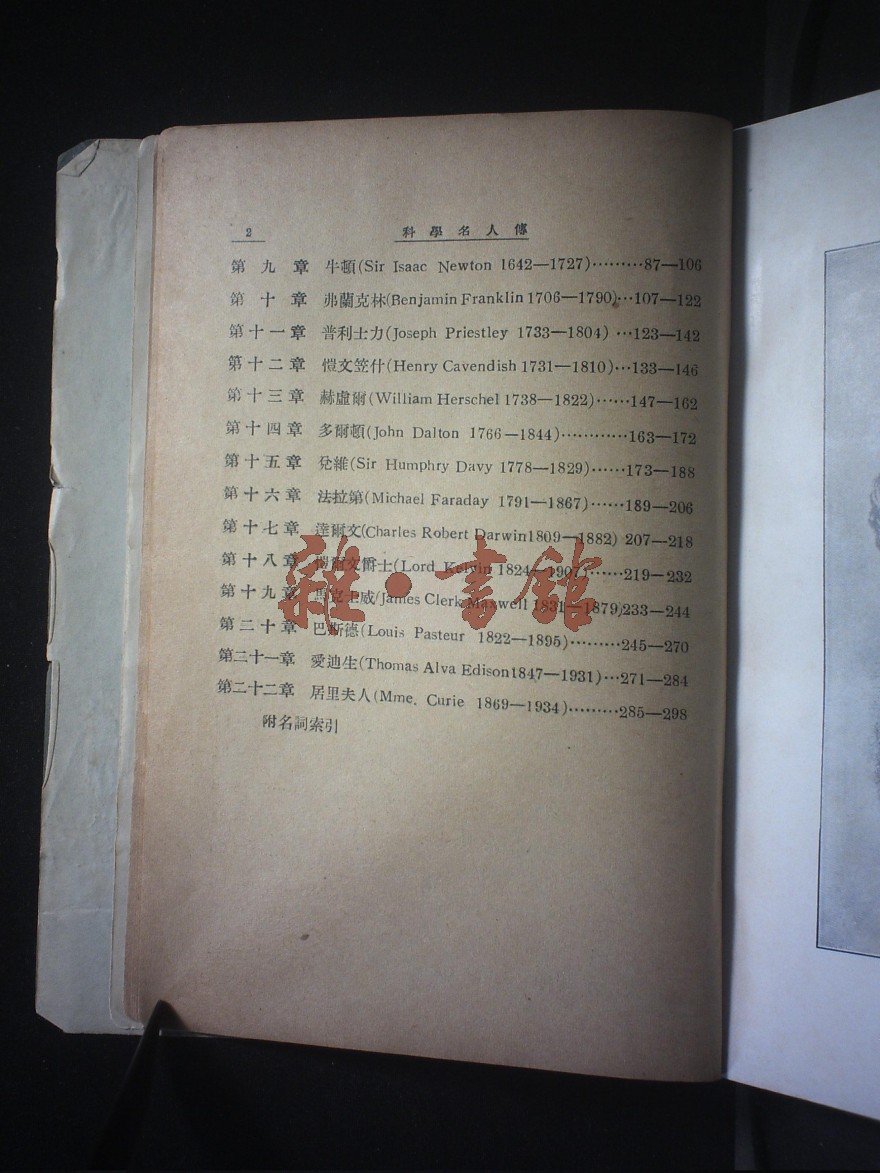 2 科學名人傳
第九章 牛頓(Sir Isaac Newton 1642—1727)·········87—106
第十章 弗蘭克林(Benjamin Franklin 1706—1790)···107—122
第十一章 普利士力(Joseph Priestley 1733—1804) ···123—142
第十二章 愷文笠什(Henry Cavendish 1731—1810)···133—146
第十三章 赫盧爾(William Herschel 1738—1822)······147—162
第十四章 多爾頓(John Dalton 1766—1844)············163—172
第十五章 兌維(Sir Humphry Davy 1778—1829)······173—188
第十六章 法拉第(Michael Faraday 1791—1867)······189—206
第十七章 達爾文(Charles Robert Darwin1809—1882) 207—218
第十八章 愷爾文爵士(Lord Kelvin 1824—1907)······219—232
第十九章 馬克士威(James Clerk Maxwell 1831—1879)233—244
第二十章 巴斯德(Louis Pasteur 1822—1895)·········245—270
第二十一章 愛迪生(Thomas Alva Edison1847—1931)···271—284
第二十二章 居里夫人(Mme. Curie 1869—1934)·········285—298
附名詞索引
雜·書館